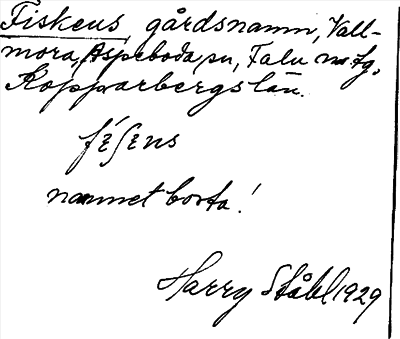 Fiskeus gårdsnamn, Vall-
mora, Aspeboda sn, Falu n. tg.
Kopparbergs län.
namnet borta!
Harry Ståhl 1929